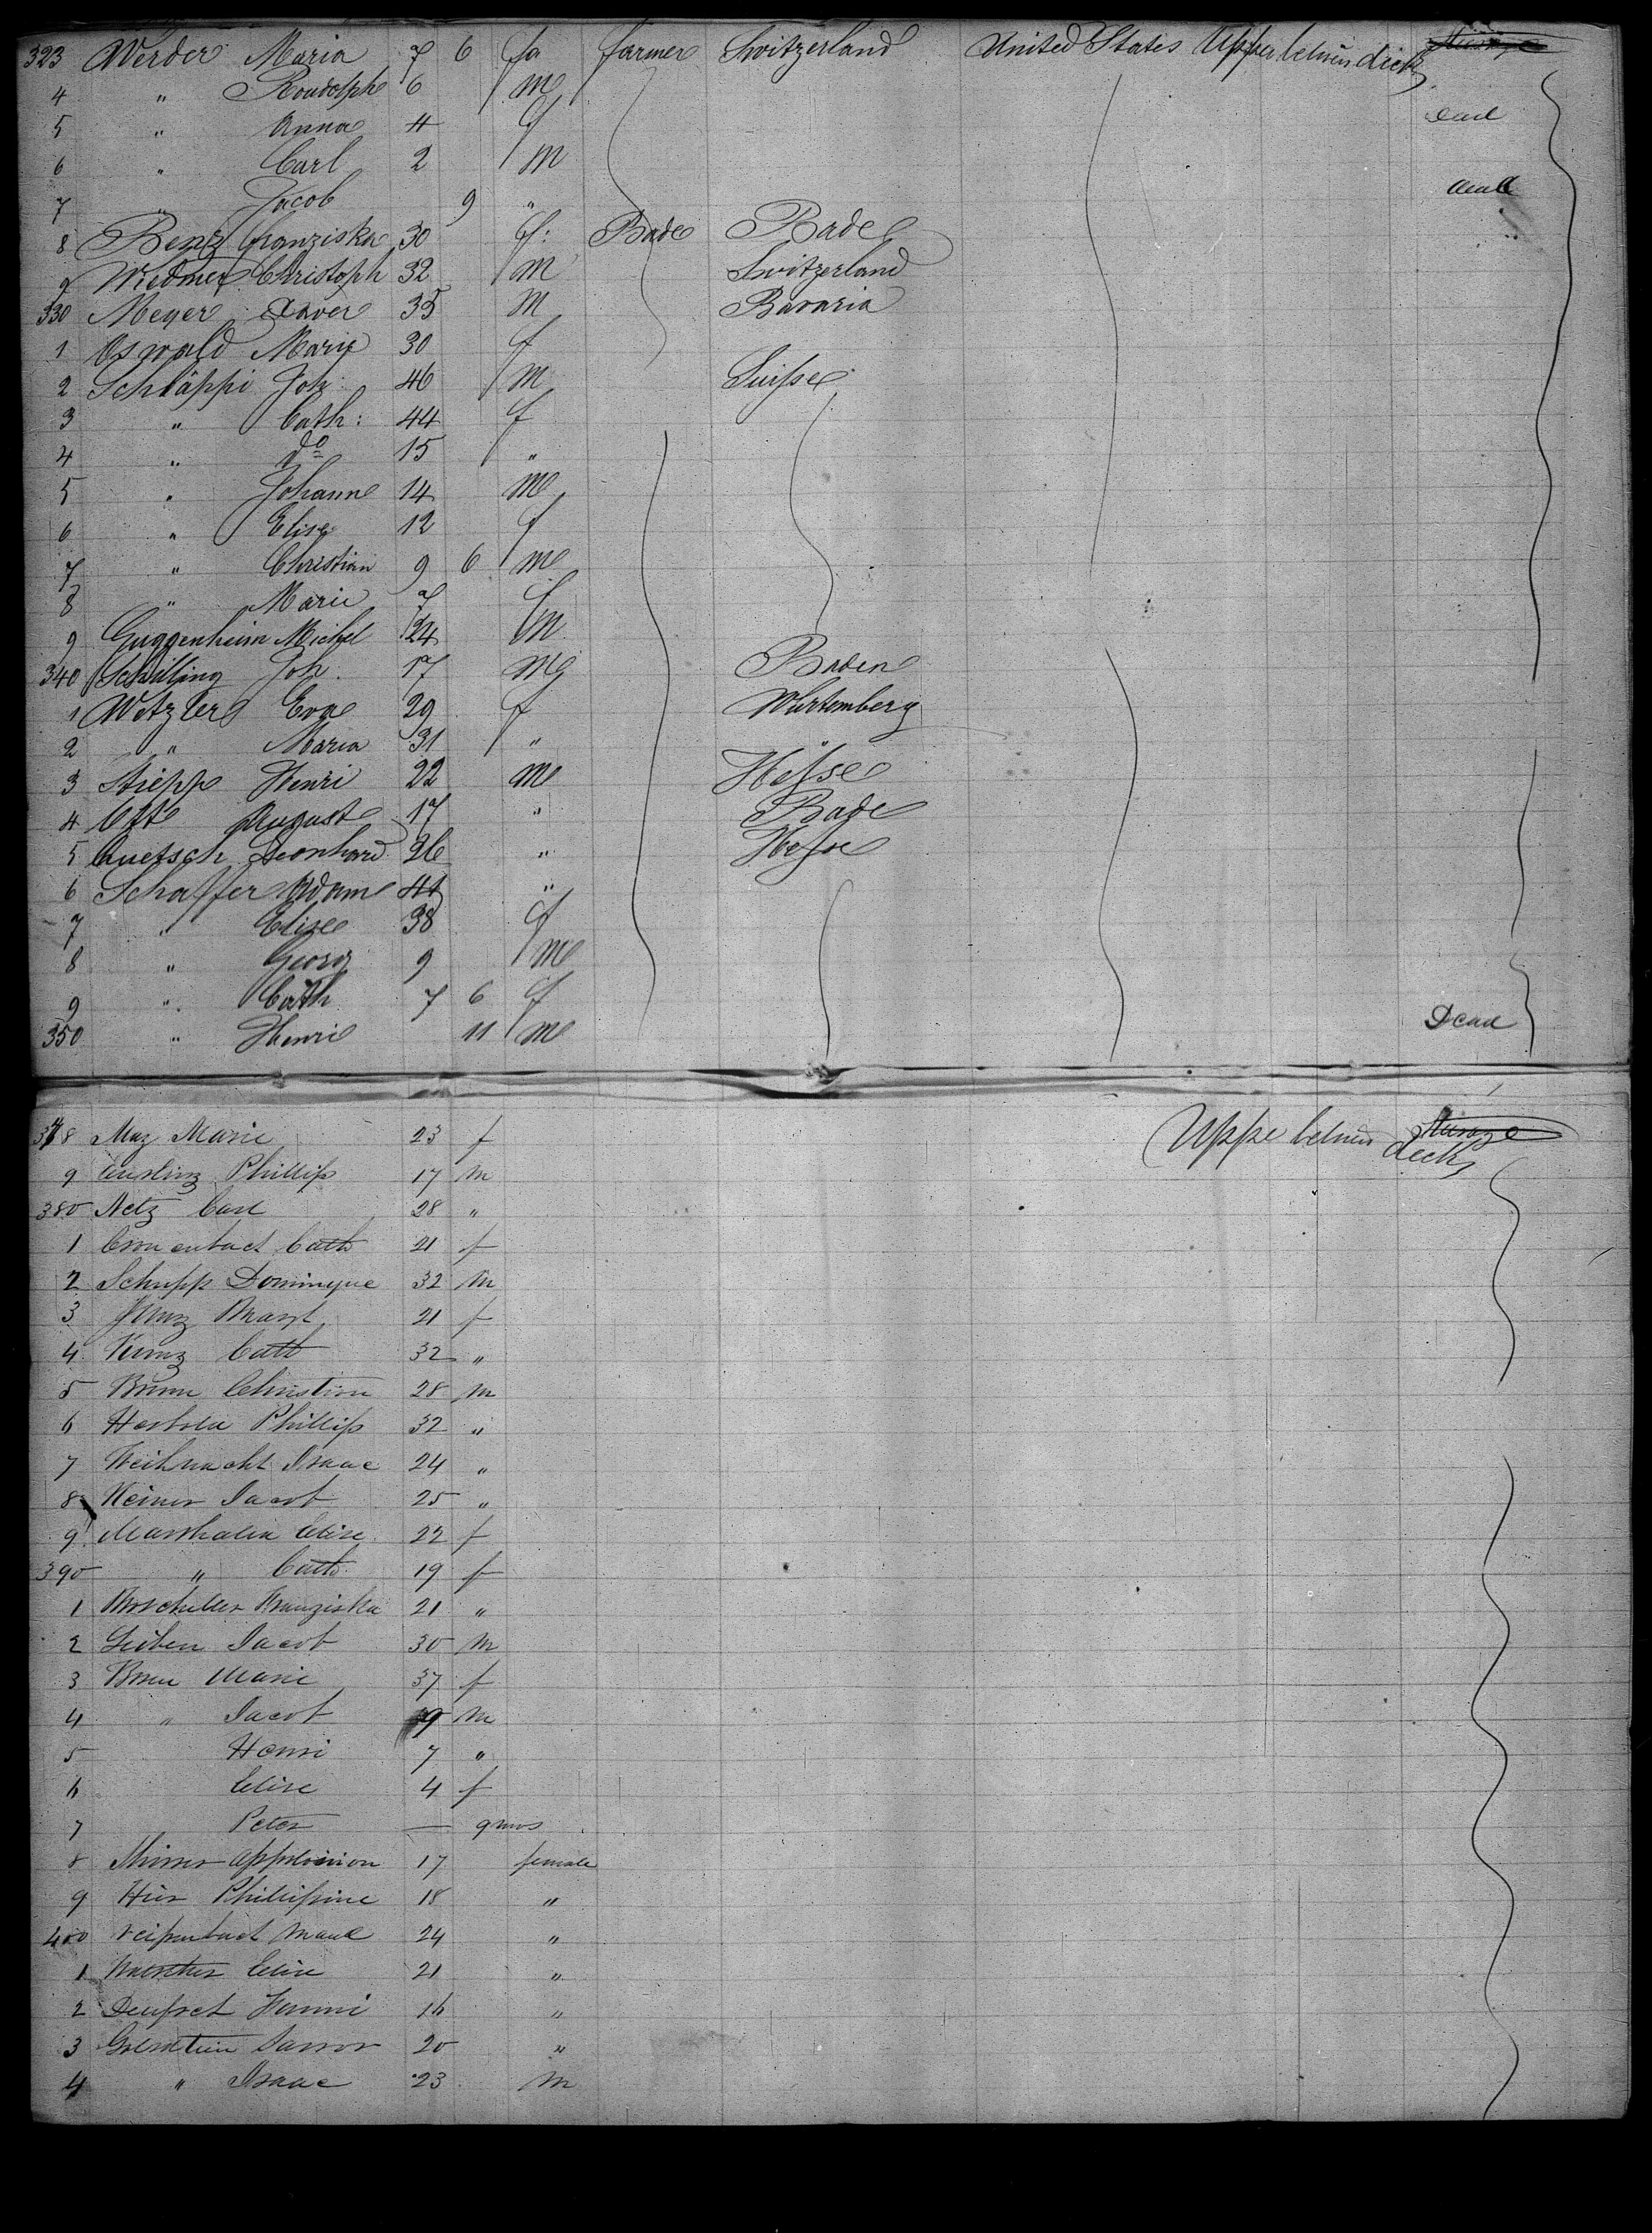 323 Werder Maria 7 6 fa farmer Switzerland United States Upper betwen decks
4 " Roudolph 6 m
5 " Anna 4 f dead
6 " Carl 2 m
7 " Jacob 9 " dead
8 Benz Franziska 30 f: Bade Bade
9 Widmer Christoph 32 m Switzerland
330 Meyer Xaver 35 m Bavaria
1 Oswald Marie 30 f
2 Schläppi Joh 46 m Suisse
3 " Cath: 44 f
4 " do 15 "
5 " Johann 14 m
6 " Elise 12 f
7 " Christian 9 6 m
8 " Marie 7 f
9 Guggenheim Michel 24 m
340 Schilling Joh. 17 m Baden
1 Wetzler Eva 29 f Wurtemberg
2 " Maria 31 "
3 Stiepp Henri 22 m Hesse
4 Ott August 17 " Bade
5 Quetsch Leonhard 26 " Hesse
6 Schaffer Adam 41 "
7 " Elise 38 f
8 " Georg 9 m
9 " Cath 7 6 f
350 " Henri 11 m Dead
378 Muz Marie 23 f Uppe betwen decks
9 Phillip 17 m
380 Netz Carl 28 "
1 Cath 21 f
2 Schupp Dominque 32 m
3 21 f
4 Kunz Cath 32 "
5 Christian 28 m
6 Phillip 32 "
7 Weihnacht Isaac 24 "
8 Jacob 25 "
9 Elise 22 f
390 " Cath. 19 f
1 Franziska 21 "
2 Jacob 30 m
3 Marie 37 f
4 " Jacob 9 m
5 Henri 7 "
6 Elise 4 f
7 Peter — 9 mos
8 17 female
9 Phillipine 18 "
400 24 "
1 Elise 21 "
2 16 "
3 20 "
4 " Isaac 23 m